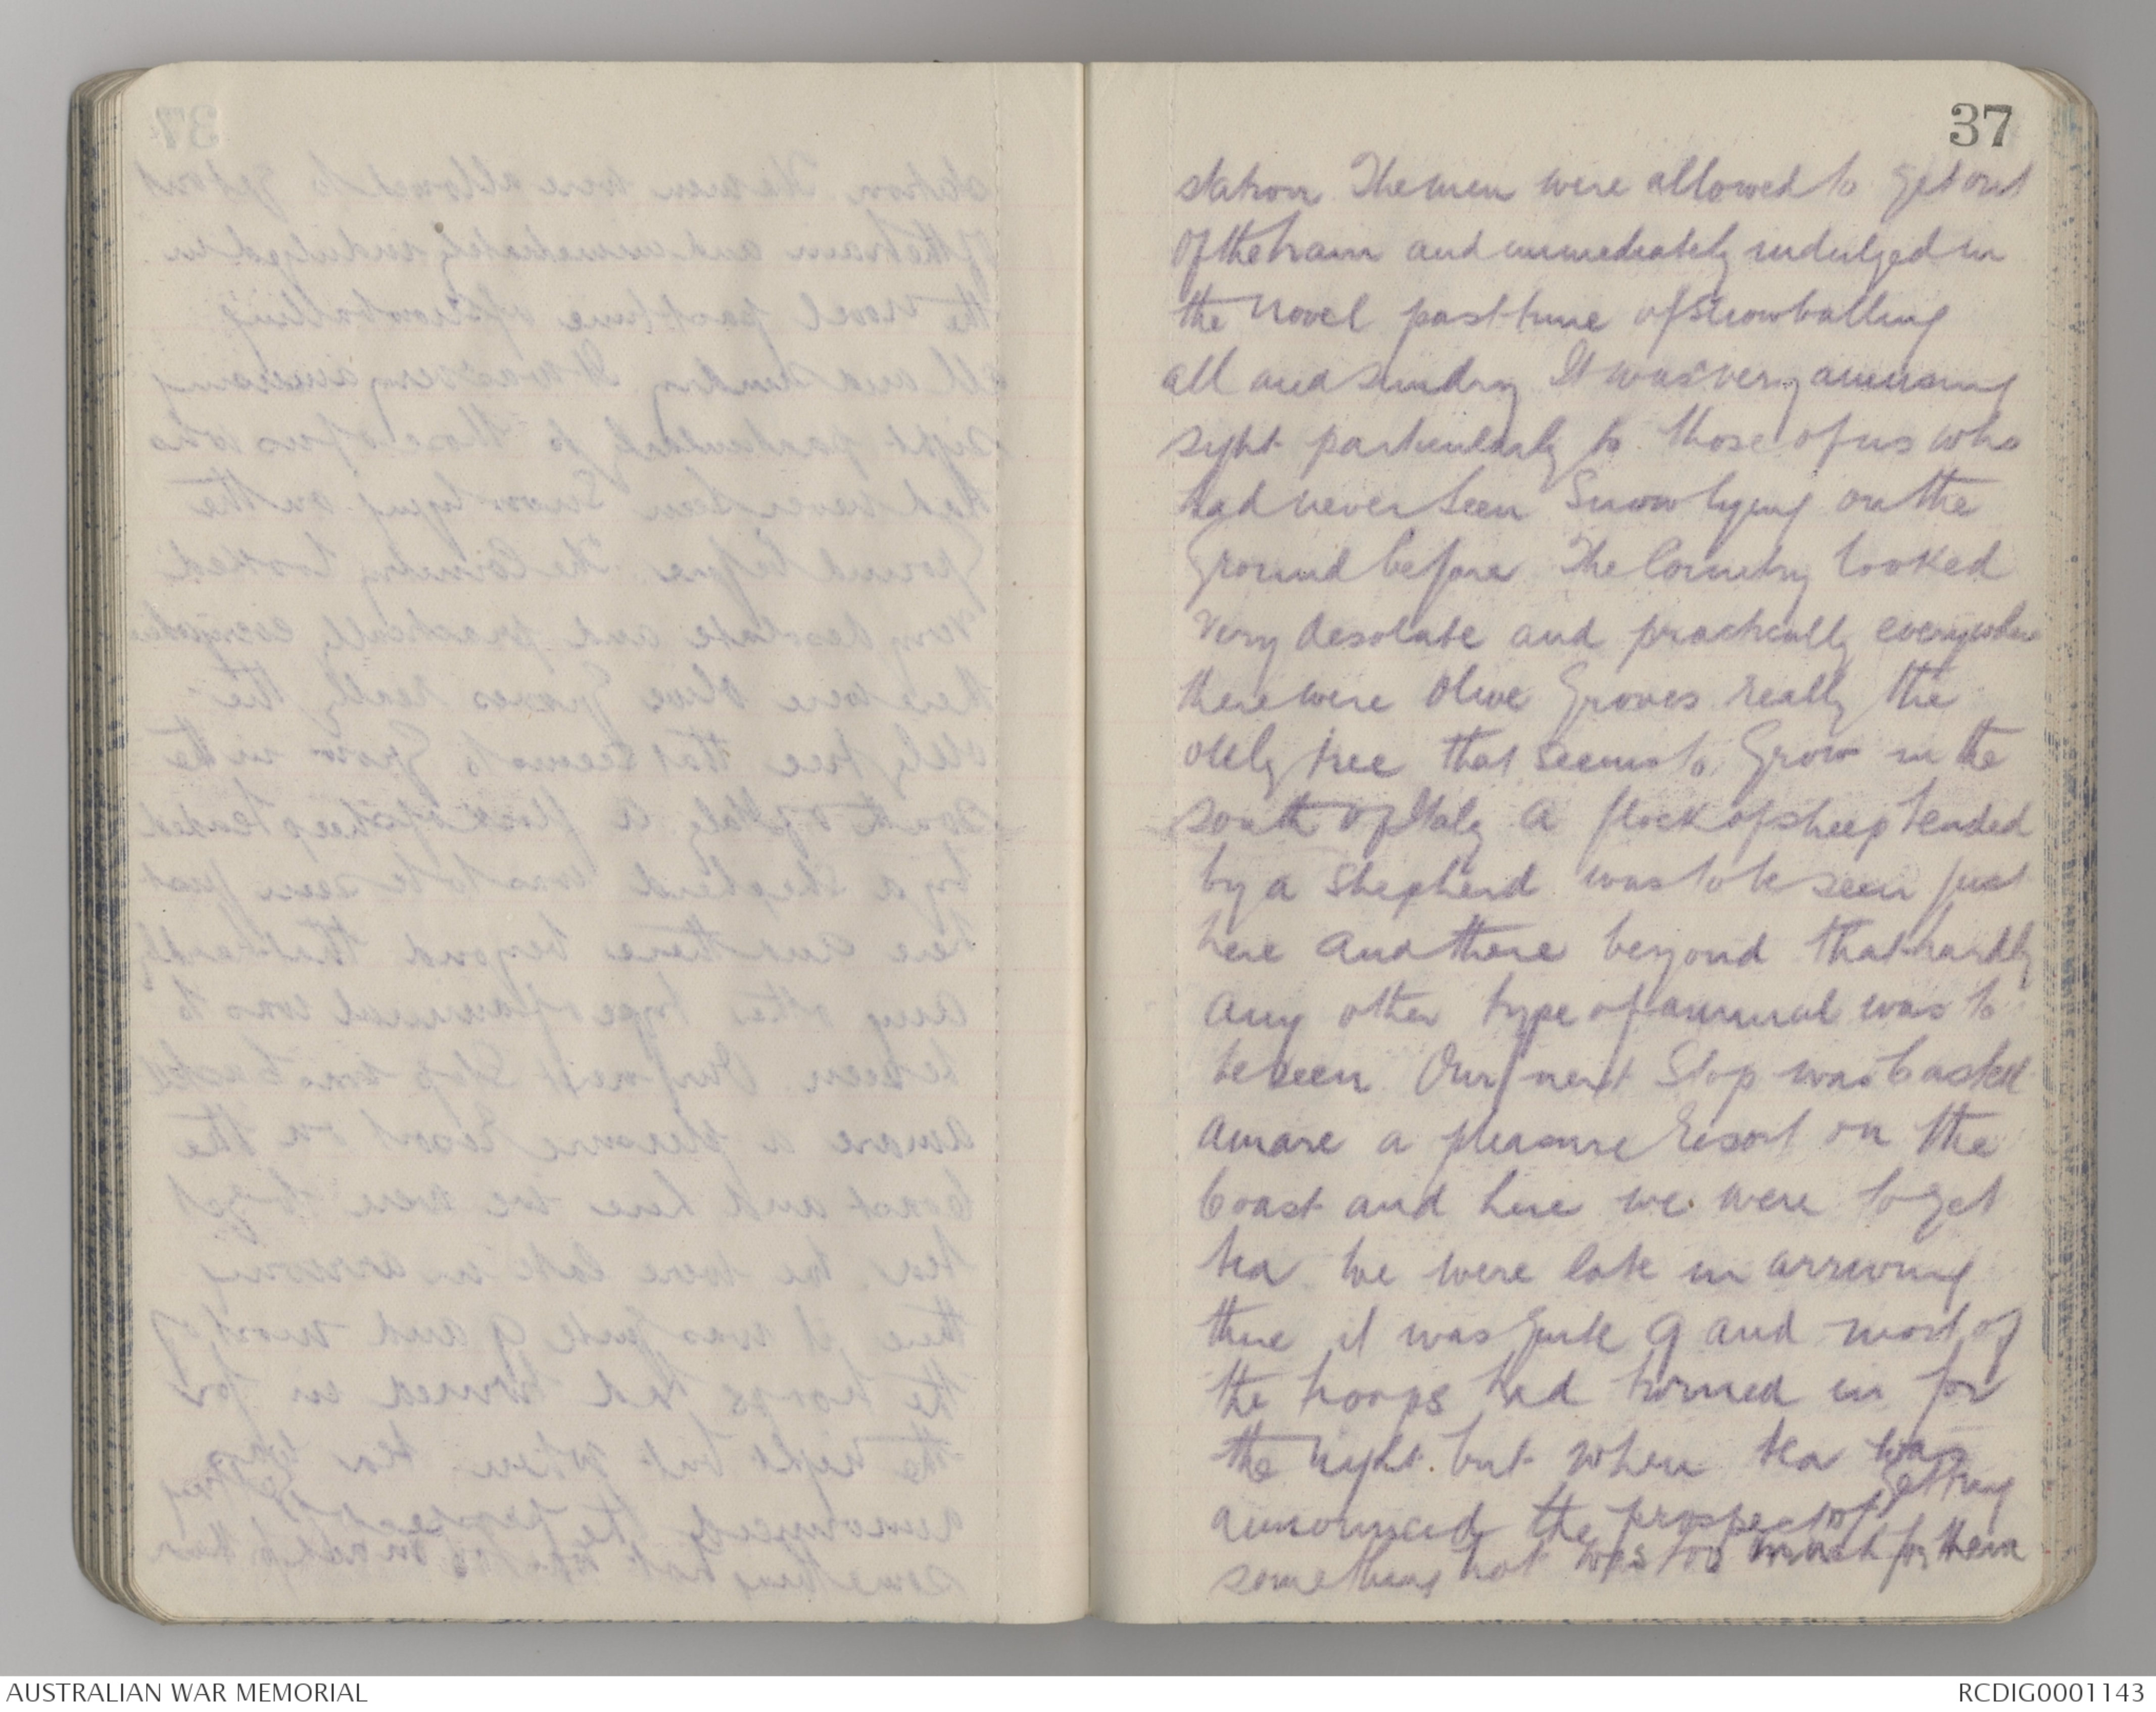 37
station The men were allowed to get out
of the train and immediately indulged in
the novel past-time of snowballing
all and sundry It was very amusing
sight particularly to those of us who
had never seen Snow lying on the
ground before The Country looked
very desolate and practically everywhere
there were Olive Groves really the
only tree that seems to Grow in the
south of Italy A flock of sheep tended
by a Shepherd was to be seen just
here and there beyond that hardly
any other type of animal was to
be seen Our next Stop was Castell
amare a pleasure resort on the
Coast and here we were to get
tea We were late in arriving
there it was quite 9 and most of
the troops had turned in for
the night but when tea was
announced the prospect of getting
something hot was too much for them
AUSTRALIAN WAR MEMORIAL
RCDIG0001143